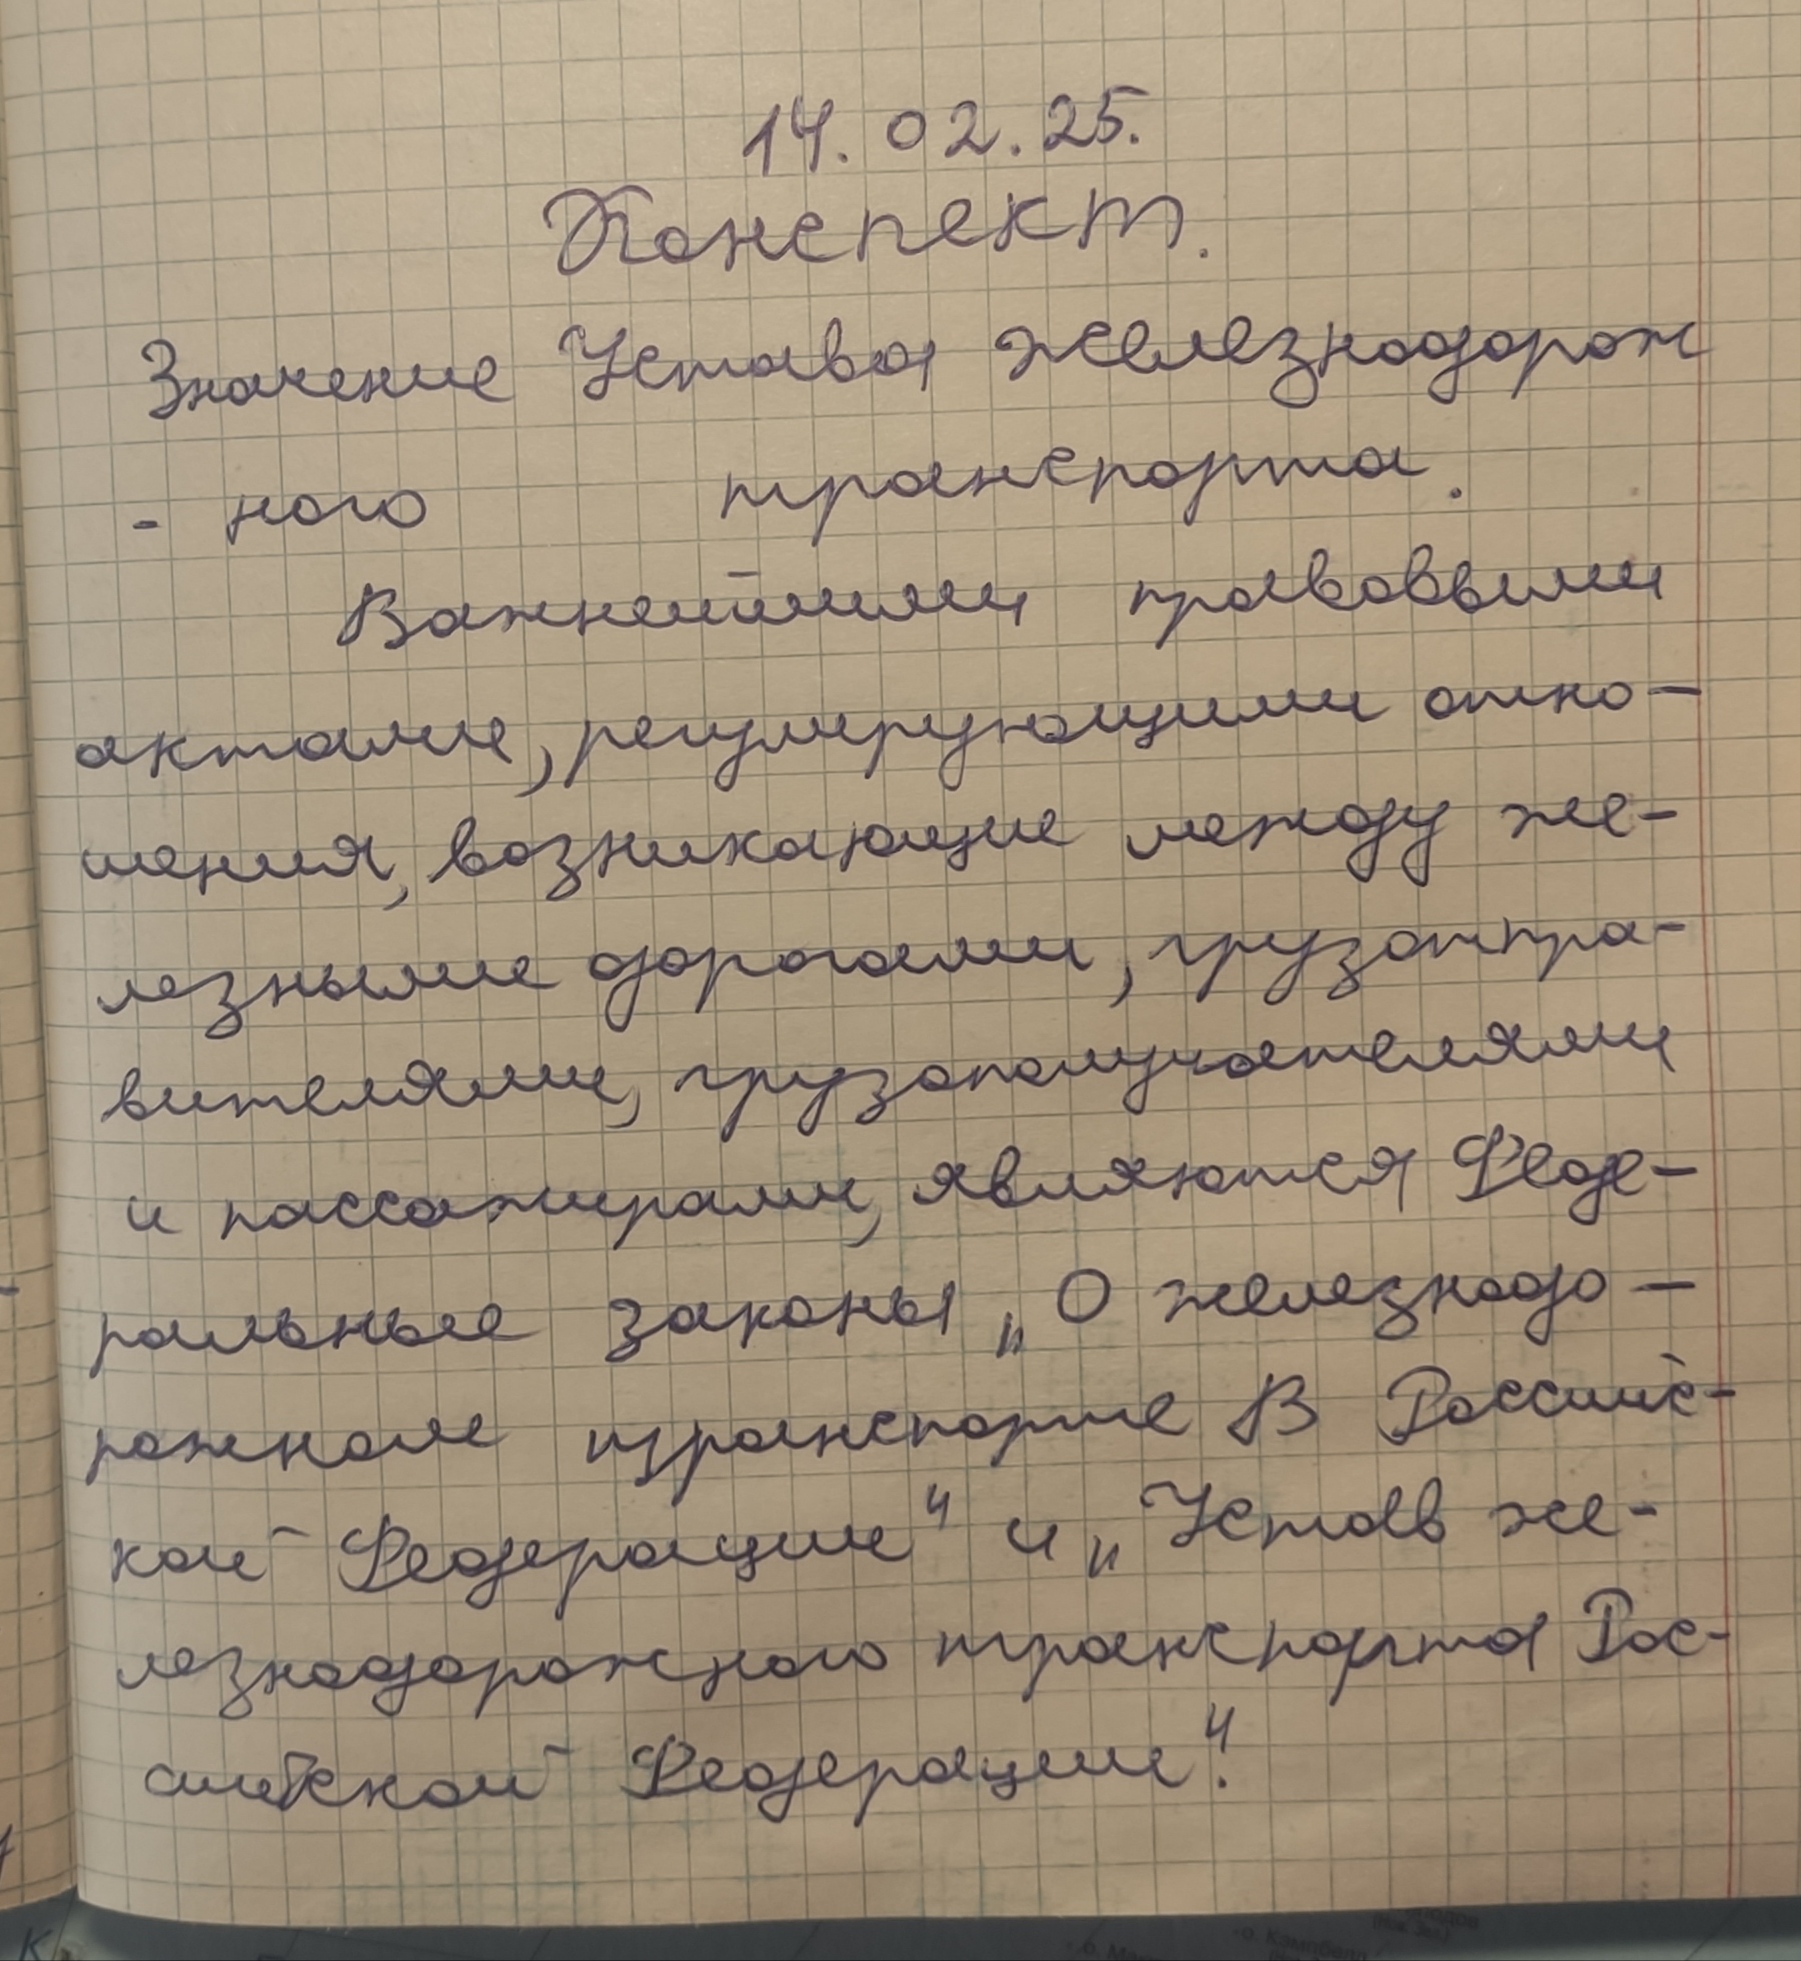 14.02.25.
Конспект.
Значение Устава железнодорож
- ного транспорта.
Важнейшими правовыми
актами, регулирующими отно-
шения, возникающие между же-
лезными дорогами, грузотпра-
вителями, грузополучателями
и пассажирами, являются Феде-
ральные законы „О железнодо-
рожном транспорте В Российс-
кой Федерации" и „Устав же-
лезнодорожного транспорта Рос-
сийской Федерации".